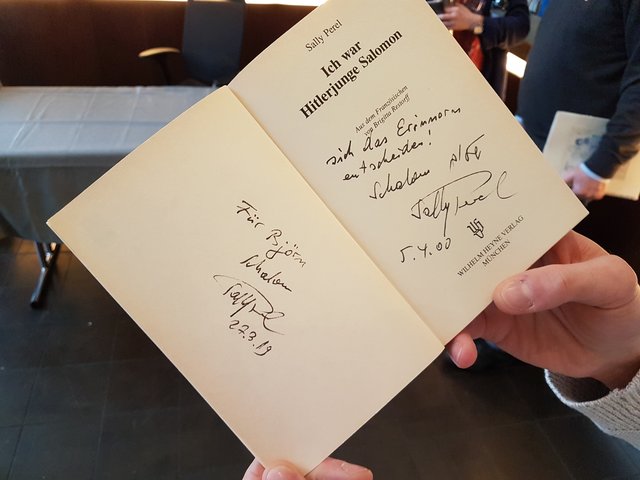 Für Björn
Schalom
Sally Perel
27.3.19
Sally Perel
Ich war
Hitlerjunge Salomon
Aus dem Französischen
von Brigitta Restorff
sich das Erinnern
entscheiden!
Schalom
Sally Perel
5.4.00
WILHELM HEYNE VERLAG
MÜNCHEN